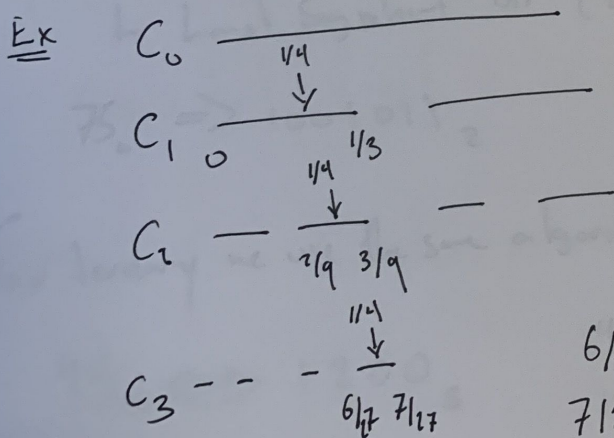 Ex C₀
1/4
C₁ 0 1/3
1/4
C₂ 2/9 3/9
1/4
C₃ 6/27 7/27
6/
7/